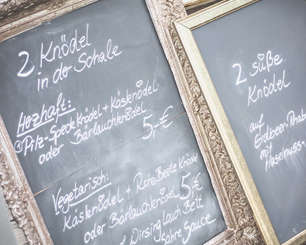 2 Knödel
in der Schale
Herzhaft:
Pilz-Speck Knödel + Käsknödel
oder Bärlauchknödel
5,- €
Vegetarisch:
Käsknödel + Rote Beete Knödel
oder Bärlauchknödel 5 €
Wirsing Lauch Bett
Sauce
2 süße
Knödel
auf Erdbeer
m. Haselnuss